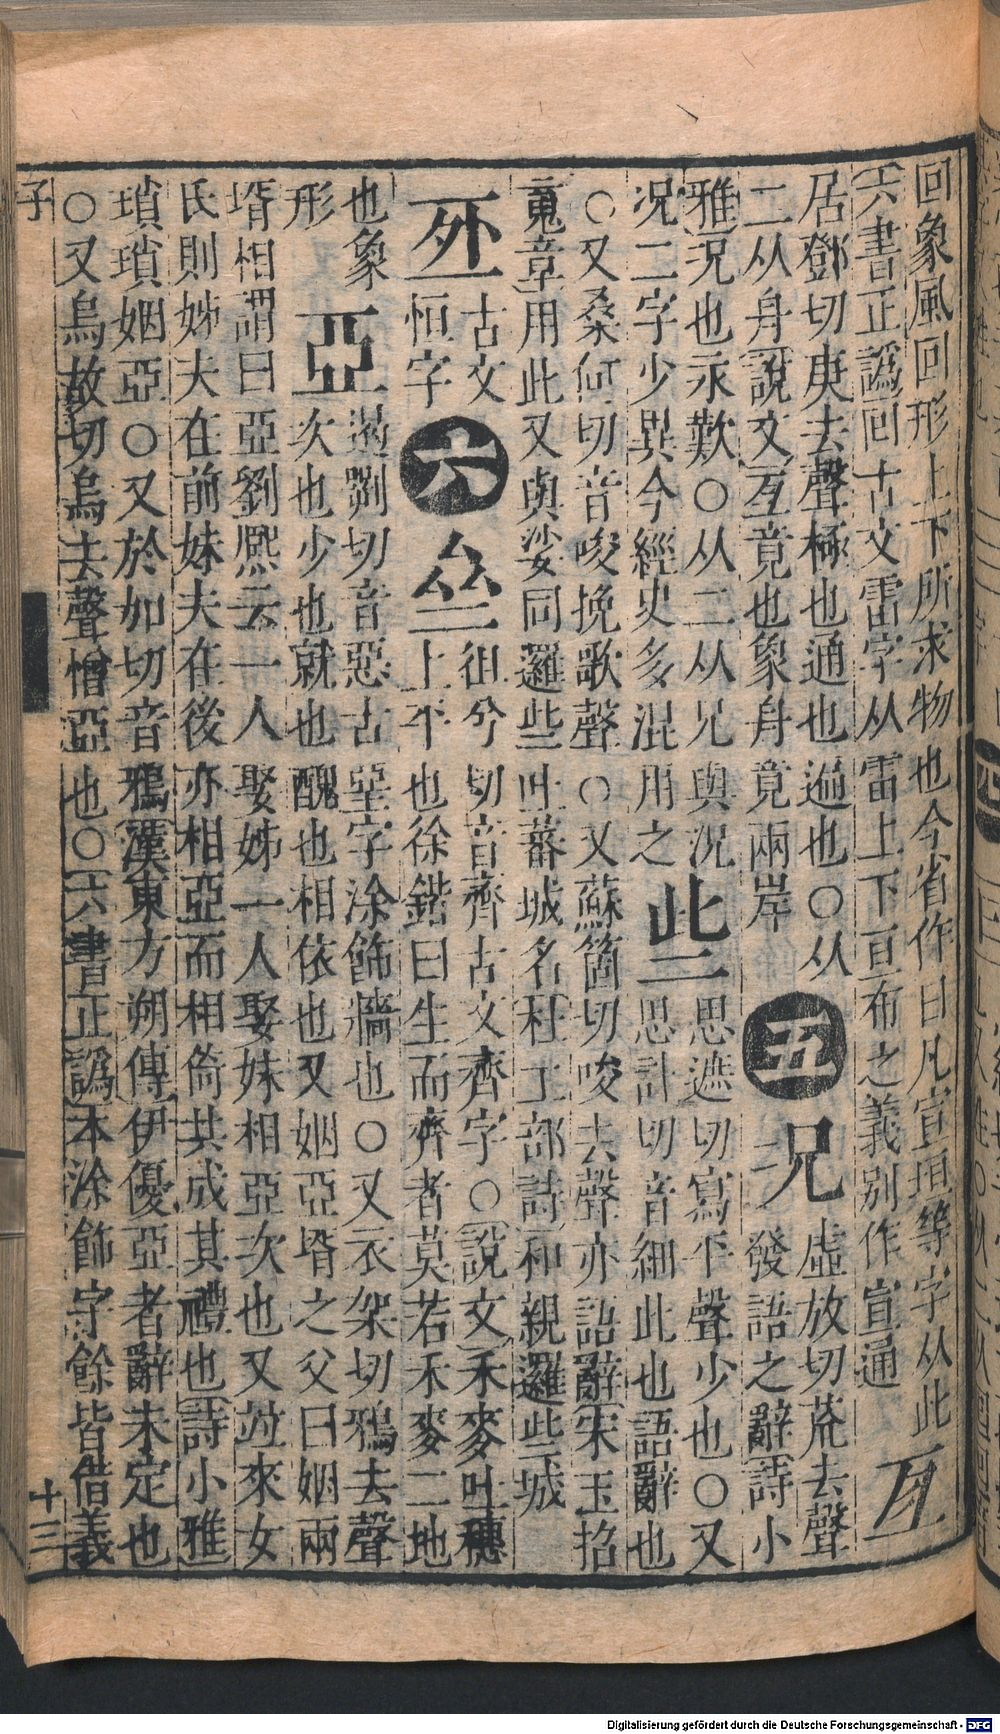 回象風回形上下所求物也今省作日凡宣垣等字从此𠄨
六書正譌囘古文雷字从雷上下亘布之義别作宣通
居鄧切庚去聲極也通也遍也○从
二从舟說文亙竟也象舟竟兩岸
五
𠑷
虛放切荒去聲
發語之辭詩小
雅况也永歎○从二从兄與況
况二字少異今經史多混用之
些
思遮切寫平聲少也○又
思計切音細此也語辭也
○又桑何切音唆挽歌聲○又蘇箇切唆去聲亦語辭宋玉招
䰟章用此又與娑同邏些吐蕃城名杜工部詩和親邏些城
𠄨
古文
恒字
六
亝
徂兮切音齊古文齊字○說文禾麥吐穗
上平也徐鍇曰生而齊者莫若禾麥二地
也象
形
亞
遏剭切音惡古堊字涂飾牆也○又衣架切鴉去聲
次也少也就也醜也相依也又姻亞壻之父曰姻兩
壻相謂曰亞劉熈云一人娶姊一人娶妹相亞次也又竝來女
氏則姊夫在前妹夫在後亦相亞而相倚共成其禮也詩小雅
瑣瑣姻亞○又於加切音鴉漢東方朔傳伊優亞者辭未定也
○又烏故切烏去聲憎亞也○六書正譌本涂飾字餘皆借義
子
十三
Digitalisierung gefördert durch die Deutsche Forschungsgemeinschaft - DFG